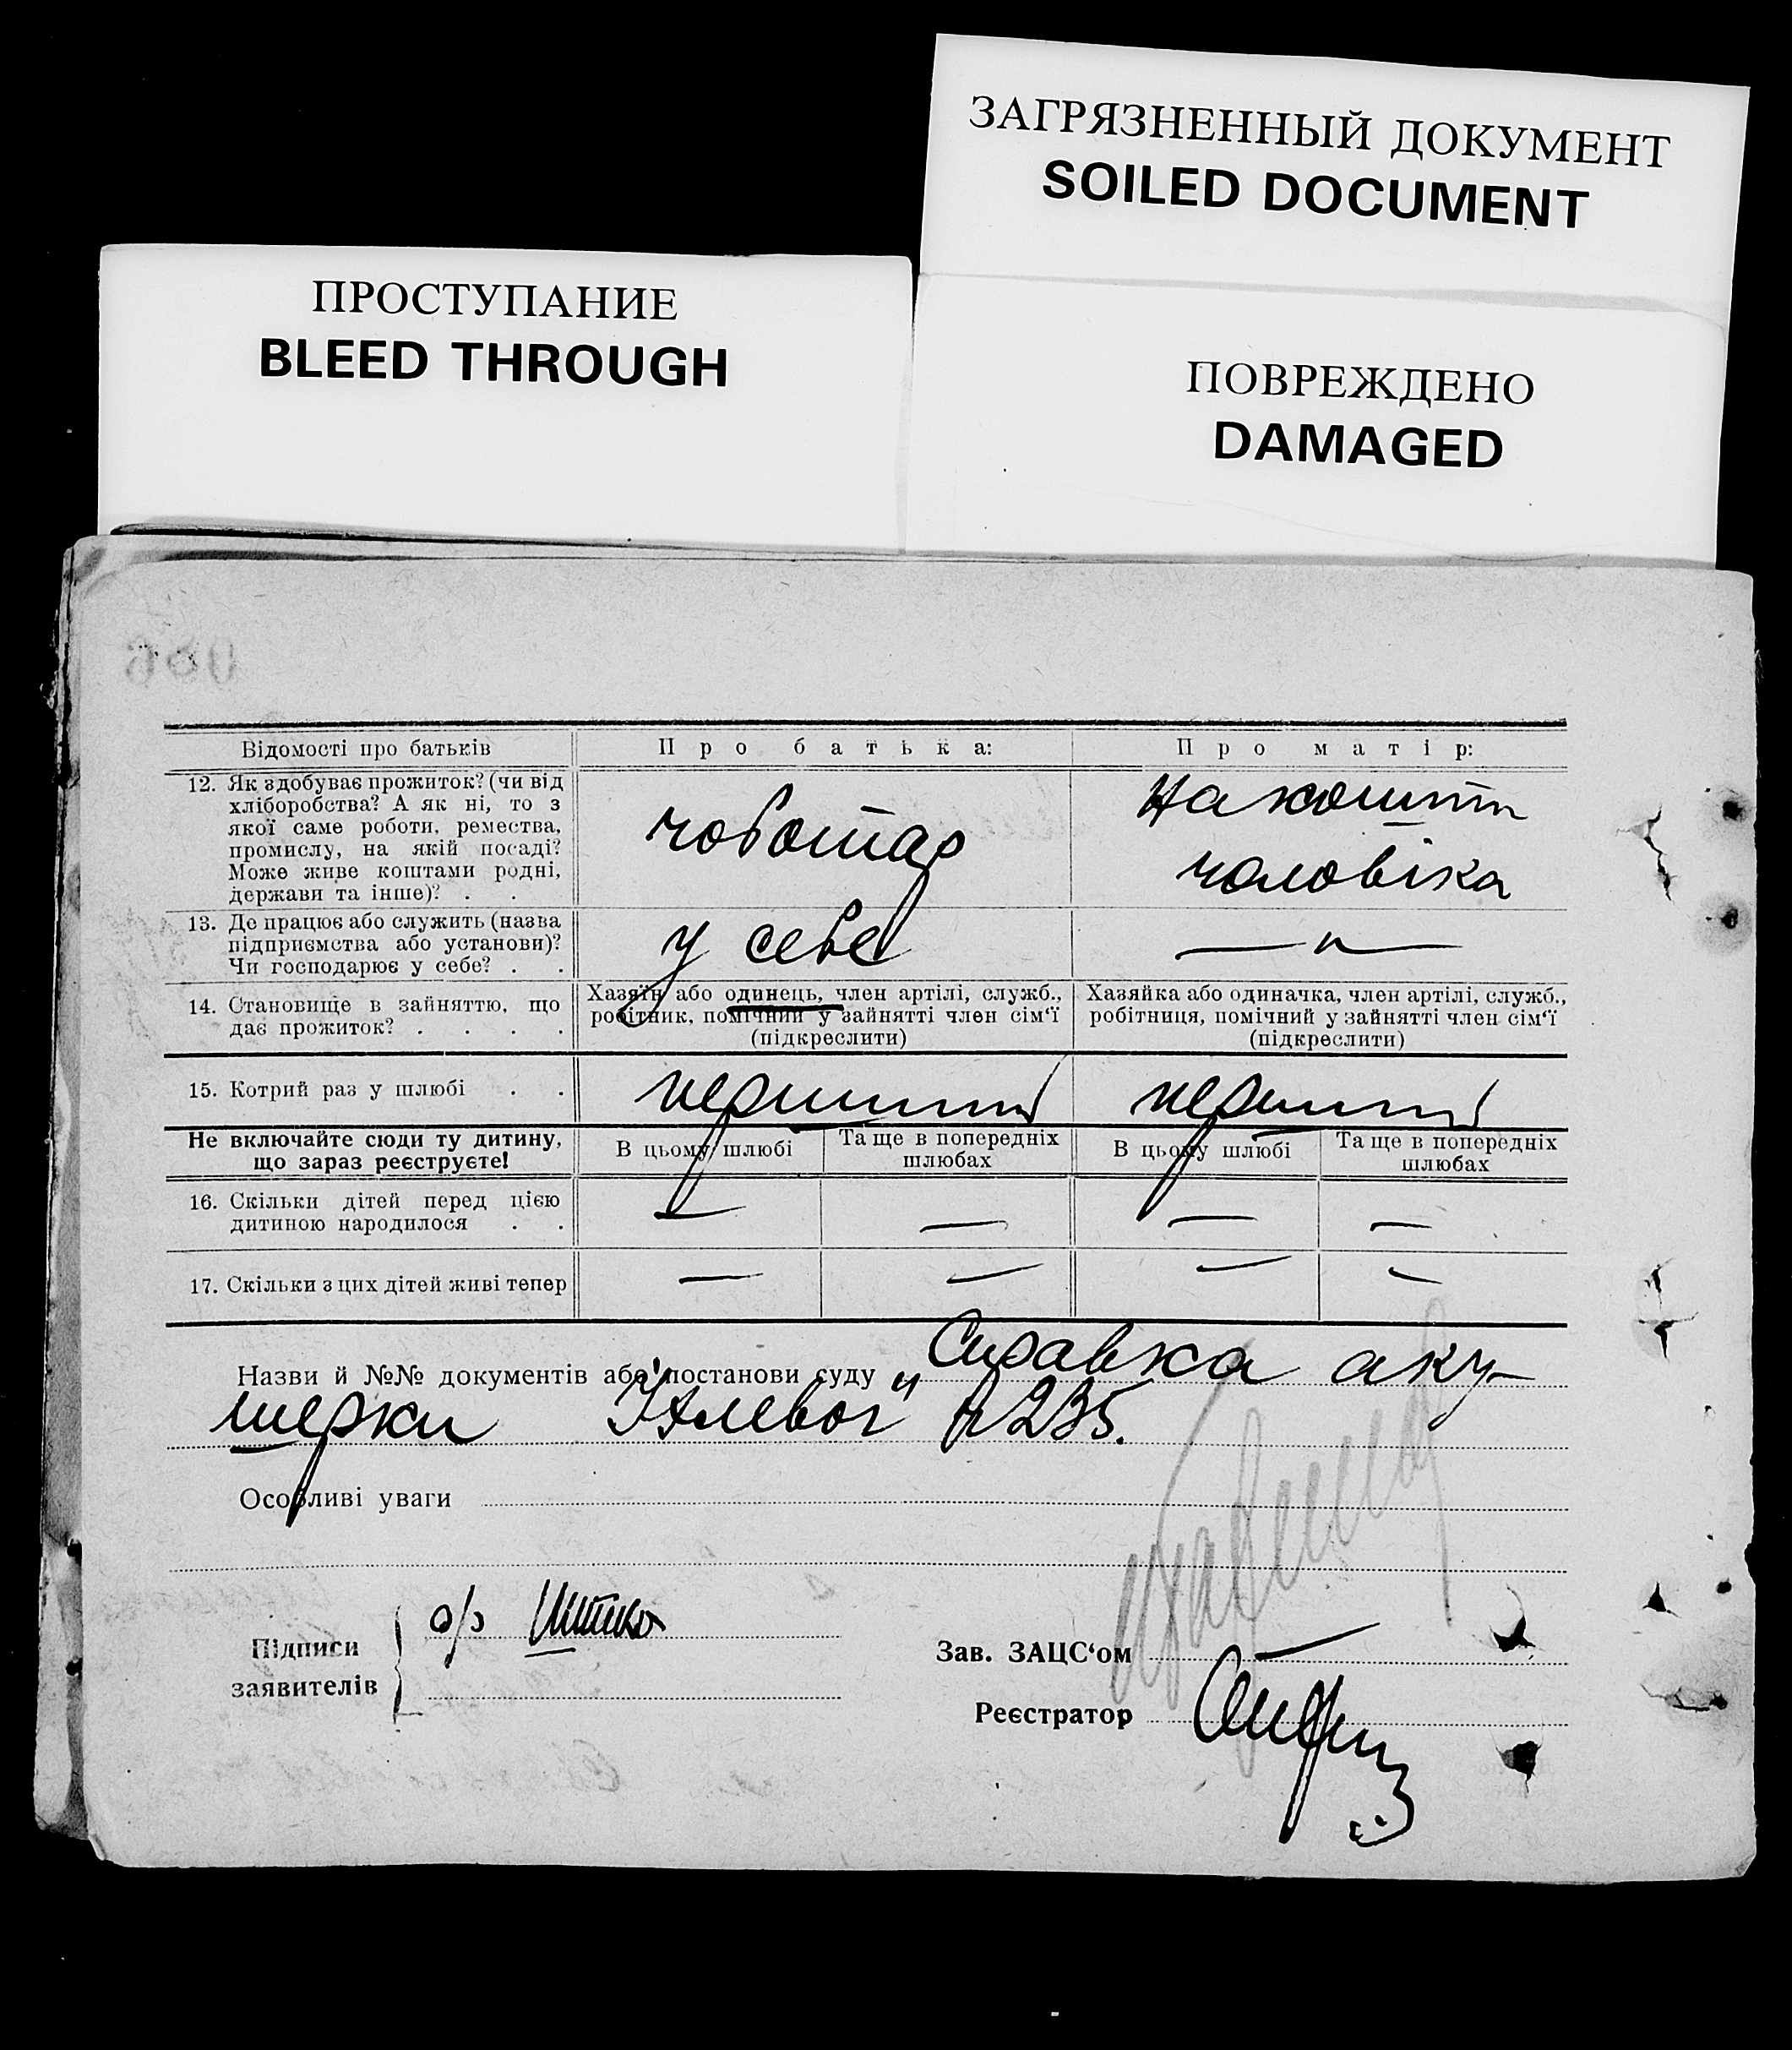 ЗАГРЯЗНЕННЫЙ ДОКУМЕНТ
SOILED DOCUMENT
ПРОСТУПАНИЕ
BLEED THROUGH
ПОВРЕЖДЕНО
DAMAGED
Відомості про батьків
Про батька:
Про матір:
12. Як здобуває прожиток? (чи від
хліборобства? А як ні, то з
якої саме роботи, ремества,
промислу, на якій посаді?
Може живе коштами родні,
держави та інше)? . .
чоботар
На кошти
чоловіка
13. Де працює або служить (назва
підприємства або установи)?
Чи господарює у себе? . .
у себе
— „ —
14. Становище в зайняттю, що
дає прожиток? . . . .
Хазяїн або одинець, член артілі, служб.,
робітник, помічний у зайнятті член сім'ї
(підкреслити)
Хазяйка або одиначка, член артілі, служб.,
робітниця, помічний у зайнятті член сім'ї
(підкреслити)
15. Котрий раз у шлюбі . .
перший
перший
Не включайте сюди ту дитину,
що зараз реєструєте!
В цьому шлюбі
Та ще в попередніх
шлюбах
В цьому шлюбі
Та ще в попередніх
шлюбах
16. Скільки дітей перед цією
дитиною народилося . .
— — — —
17. Скільки з цих дітей живі тепер
— — — —
Назви й №№ документів або постанови суду „Справка аку-
шерки № 235.
Особливі уваги
Підписи
заявителів
Зав. ЗАЦС'ом —
Реєстратор